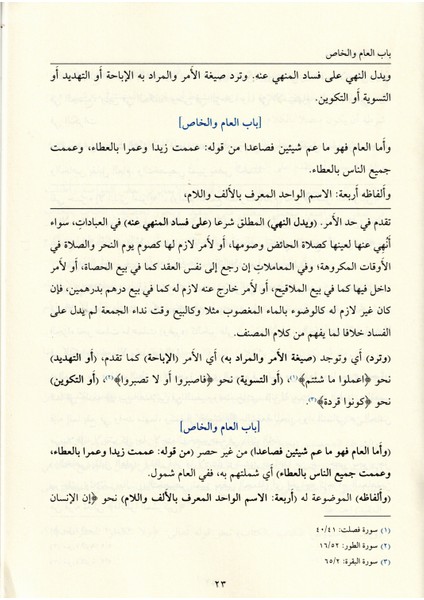 باب العام والخاص
ويدل النهي على فساد المنهي عنه. وترد صيغة الأمر والمراد به الإباحة أو التهديد أو
التسوية أو التكوين.
[باب العام والخاص]
وأما العام فهو ما عم شيئين فصاعدا من قوله: عممت زيدا وعمرا بالعطاء، وعممت
جميع الناس بالعطاء.
وألفاظه أربعة: الاسم الواحد المعرف بالألف واللام،
تقدم في حد الأمر. (ويدل النهي) المطلق شرعا (على فساد المنهي عنه) في العبادات، سواء
أنُهِي عنها لعينها كصلاة الحائض وصومها، أو لأمر لازم لها كصوم يوم النحر والصلاة في
الأوقات المكروهة؛ وفي المعاملات إن رجع إلى نفس العقد كما في بيع الحصاة، أو لأمر
داخل فيها كما في بيع الملاقيح، أو لأمر خارج عنه لازم له كما في بيع درهم بدرهمين، فإن
كان غير لازم له كالوضوء بالماء المغصوب مثلا وكالبيع وقت نداء الجمعة لم يدل على
الفساد خلافا لما يفهم من كلام المصنف.
(وترد) أي وتوجد (صيغة الأمر والمراد به) أي الأمر (الإباحة) كما تقدم، (أو التهديد)
نحو ﴿اعملوا ما شئتم﴾(١)، (أو التسوية) نحو ﴿فاصبروا أو لا تصبروا﴾(٢)، (أو التكوين)
نحو ﴿كونوا قردة﴾(٣).
[باب العام والخاص]
(وأما العام فهو ما عم شيئين فصاعدا) من غير حصر (من قوله: عممت زيدا وعمرا بالعطاء،
وعممت جميع الناس بالعطاء) أي شملتهم به، ففي العام شمول.
(وألفاظه) الموضوعة له (أربعة: الاسم الواحد المعرف بالألف واللام) نحو ﴿إن الإنسان
(١) سورة فصلت: ٤٠/٤١
(٢) سورة الطور: ١٦/٥٢
(٣) سورة البقرة: ٦٥/٢
٢٣